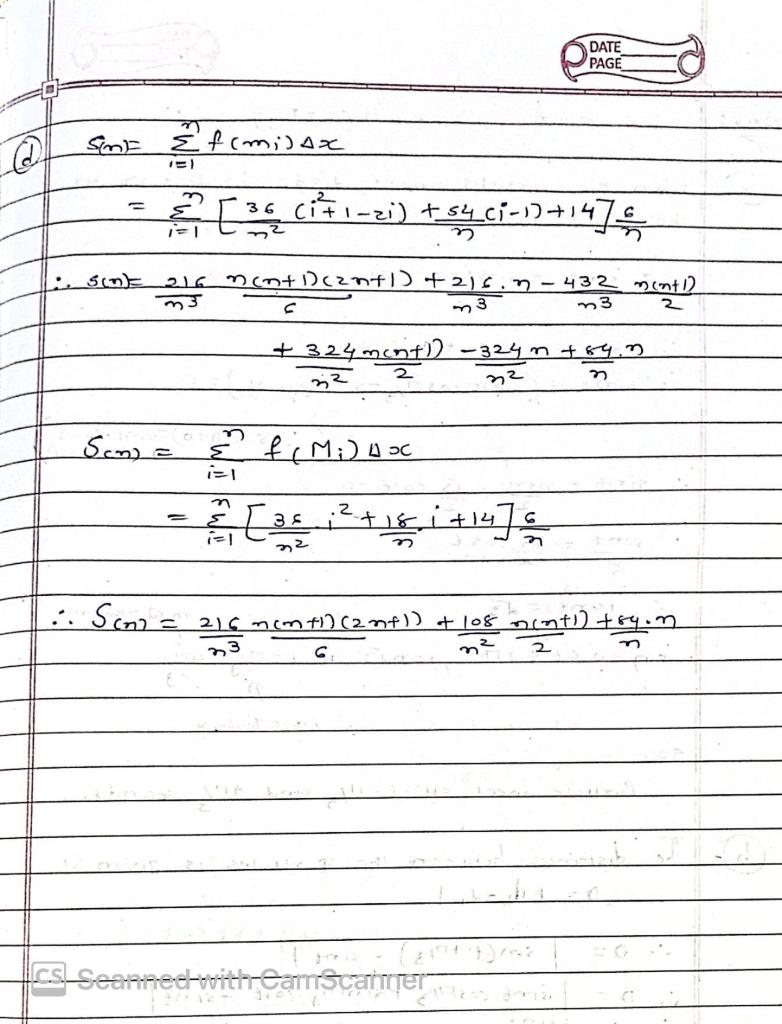 DATE
PAGE
(d) s(n) = n Σ i=1 f(mi) Δx
= n Σ i=1 [ 36/n² (i²+1-2i) + 54/n (i-1) + 14 ] 6/n
∴ s(n) = 216/n³ n(n+1)(2n+1)/6 + 216.n/n³ - 432/n³ n(n+1)/2
+ 324/n² n(n+1)/2 - 324n/n² + 84.n/n
S(n) = n Σ i=1 f(Mi) Δx
= n Σ i=1 [ 36/n² . i² + 18/n . i + 14 ] 6/n
∴ S(n) = 216/n³ n(n+1)(2n+1)/6 + 108/n² n(n+1)/2 + 84.n/n
CS Scanned with CamScanner